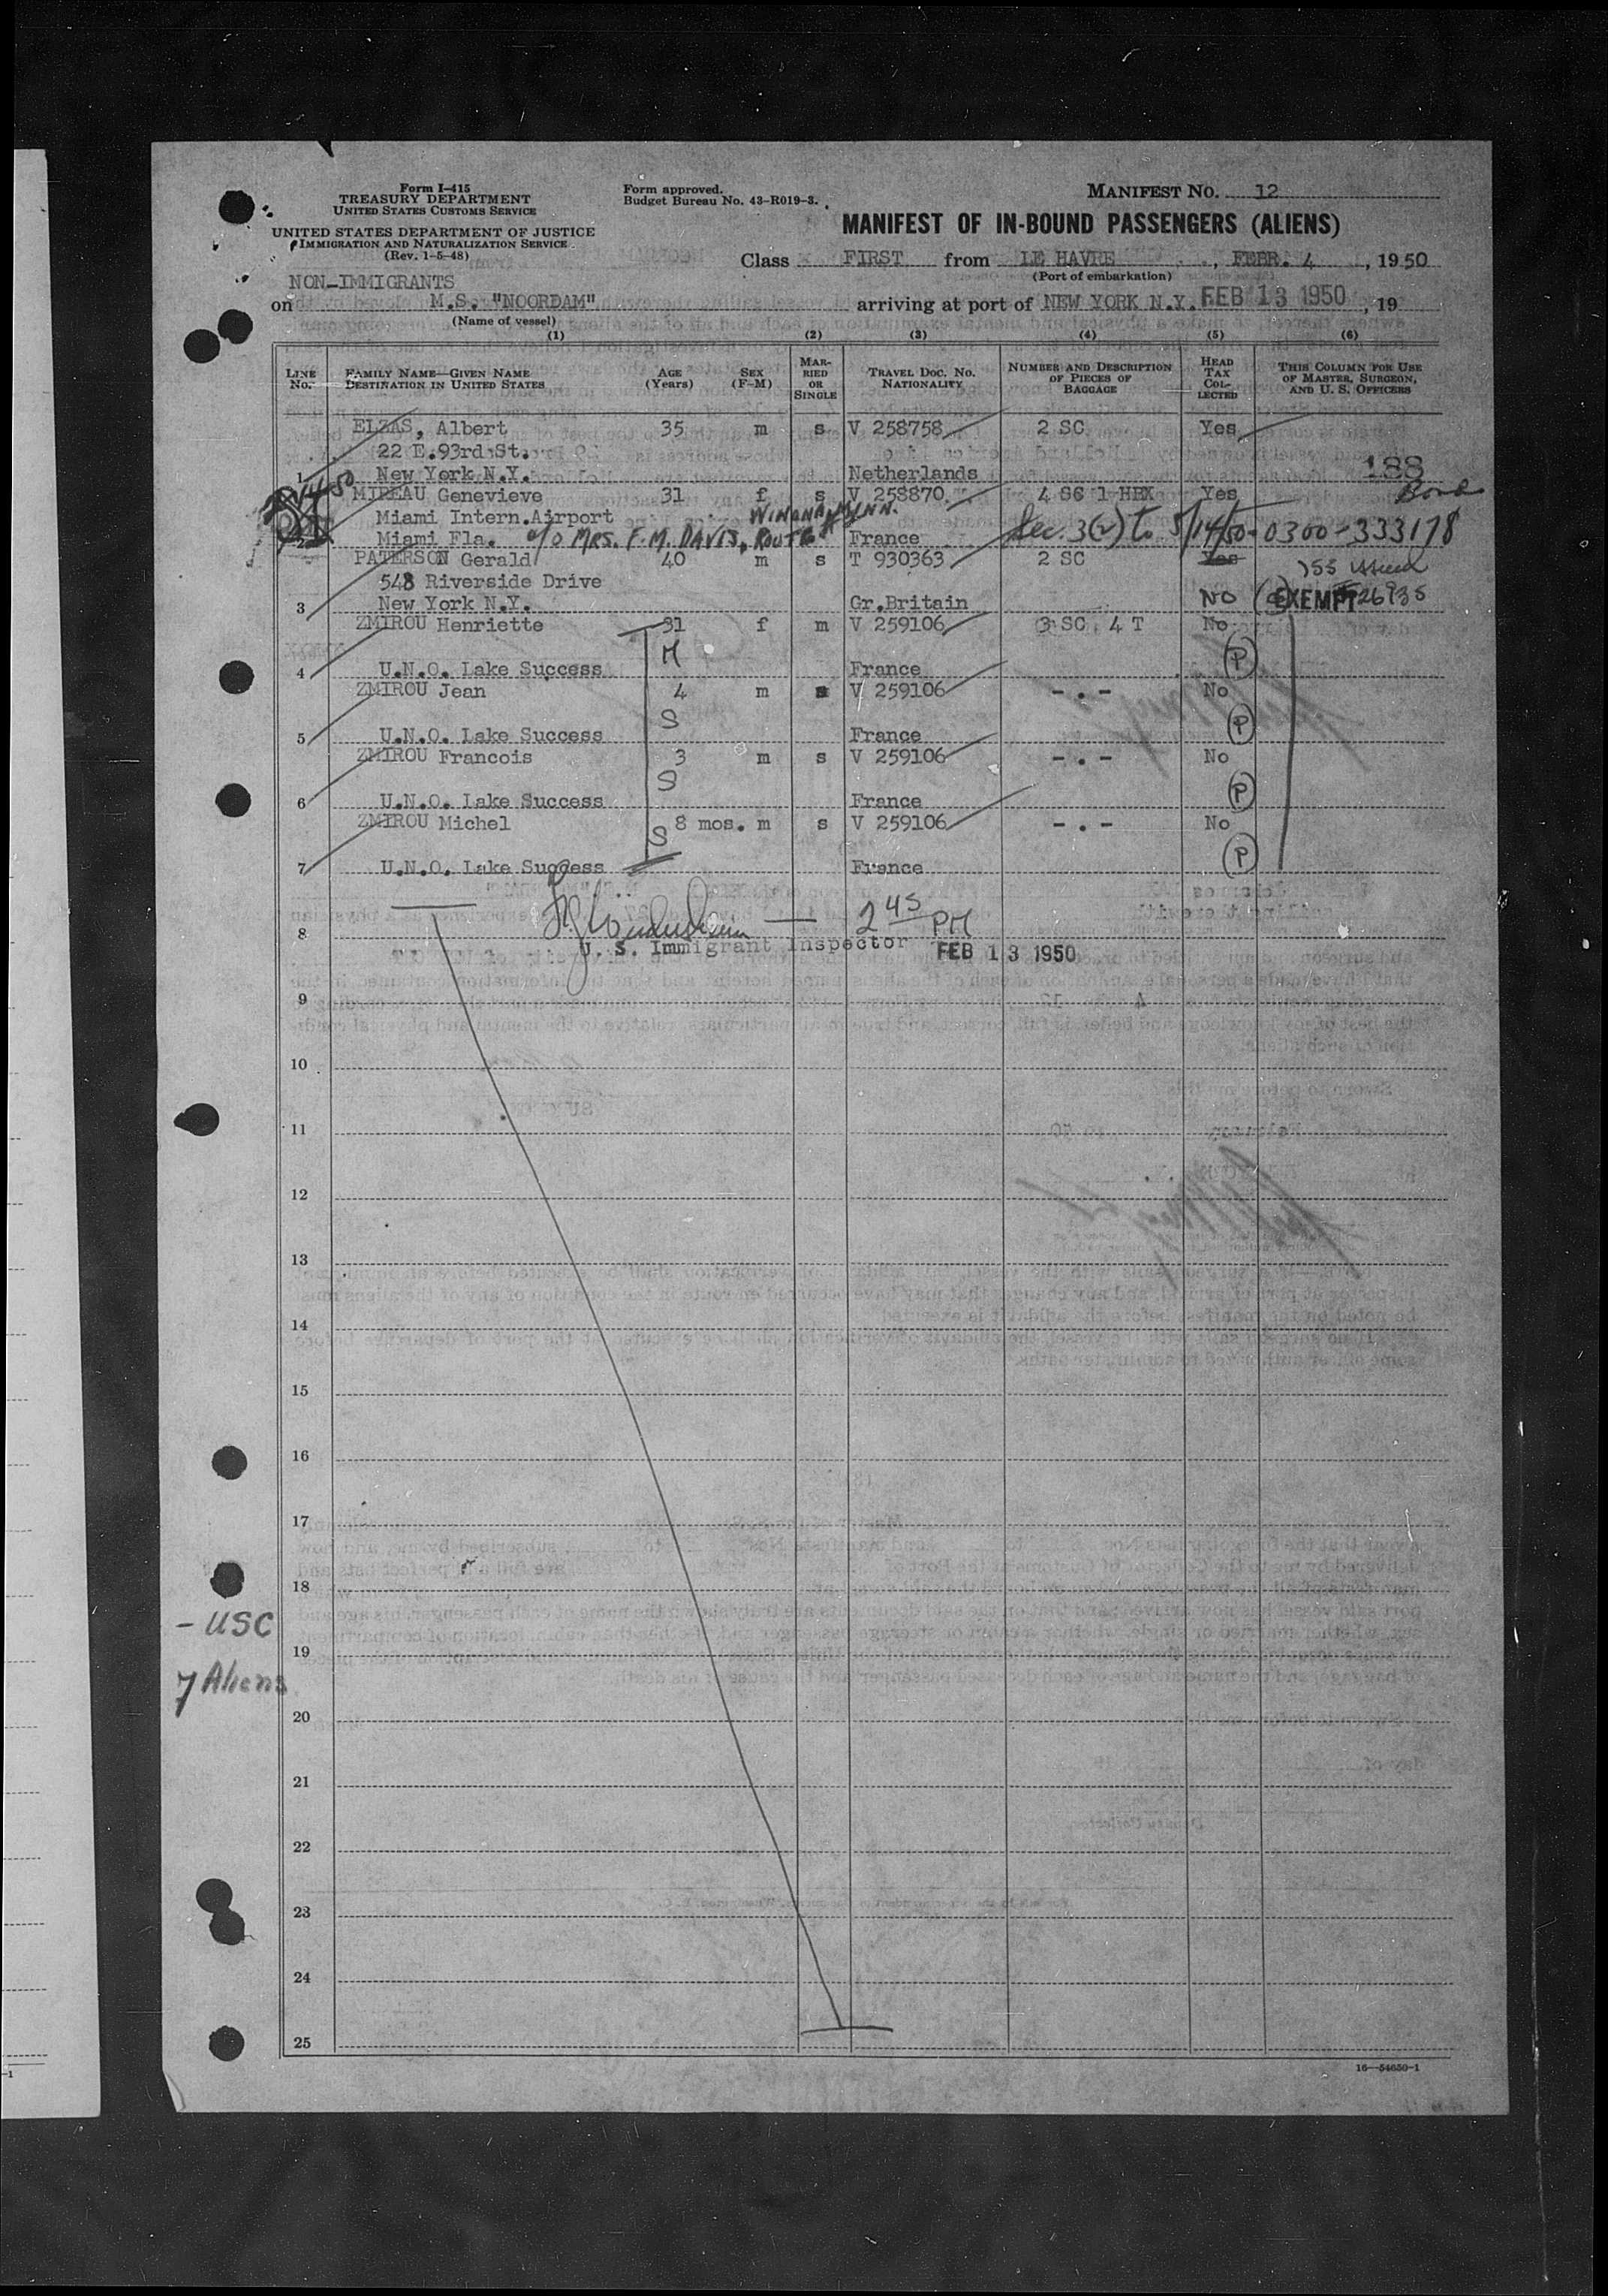 Form I-415
TREASURY DEPARTMENT
UNITED STATES CUSTOMS SERVICE
UNITED STATES DEPARTMENT OF JUSTICE
IMMIGRATION AND NATURALIZATION SERVICE
(Rev. 1-5-48)
Form approved.
Budget Bureau No. 43-R019-3.
MANIFEST NO. 12
MANIFEST OF IN-BOUND PASSENGERS (ALIENS)
Class FIRST from LE HAVRE, FEBR. 4, 1950
(Port of embarkation)
NON-IMMIGRANTS
on M.S. "NOORDAM" arriving at port of NEW YORK N.Y. FEB 13 1950, 19
(Name of vessel)
(1) (2) (3) (4) (5) (6)
LINE No. FAMILY NAME—GIVEN NAME DESTINATION IN UNITED STATES AGE (Years) SEX (F-M) MARRIED OR SINGLE TRAVEL DOC. NO. NATIONALITY NUMBER AND DESCRIPTION OF PIECES OF BAGGAGE HEAD TAX COLLECTED THIS COLUMN FOR USE OF MASTER, SURGEON, AND U. S. OFFICERS
ELZAS, Albert 35 m s V 258758 2 SC Yes
22 E.93rd St.
1 New York N.Y. Netherlands 188
MIREAU Genevieve 31 f s V 258870 4 SC 1 HBX Yes Bond
Miami Intern.Airport WINONA, MINN. Sec. 3(2) to 5/14/50-0300-333178
2 Miami Fla. c/o MRS. F.M. DAVIS, ROUTE France
PATERSON Gerald 40 m s T 930363 2 SC Yes 155 issued
548 Riverside Drive
3 New York N.Y. Gr.Britain NO EXEMPT
ZMIROU Henriette 31 f m V 259106 3 SC 4 T No
M P
4 U.N.O. Lake Success France
ZMIROU Jean 4 m s V 259106 -.- No
S P
5 U.N.O. Lake Success France
ZMIROU Francois 3 m s V 259106 -.- No
S P
6 U.N.O. Lake Success France
ZMIROU Michel 8 mos. m s V 259106 -.- No
S P
7 U.N.O. Lake Success France
8 — 2 45 PM
U. S. Immigrant Inspector FEB 13 1950
9
10
11
12
13
14
15
16
17
18
- USC
19
7 Aliens
20
21
22
23
24
25
16—54650-1
-1